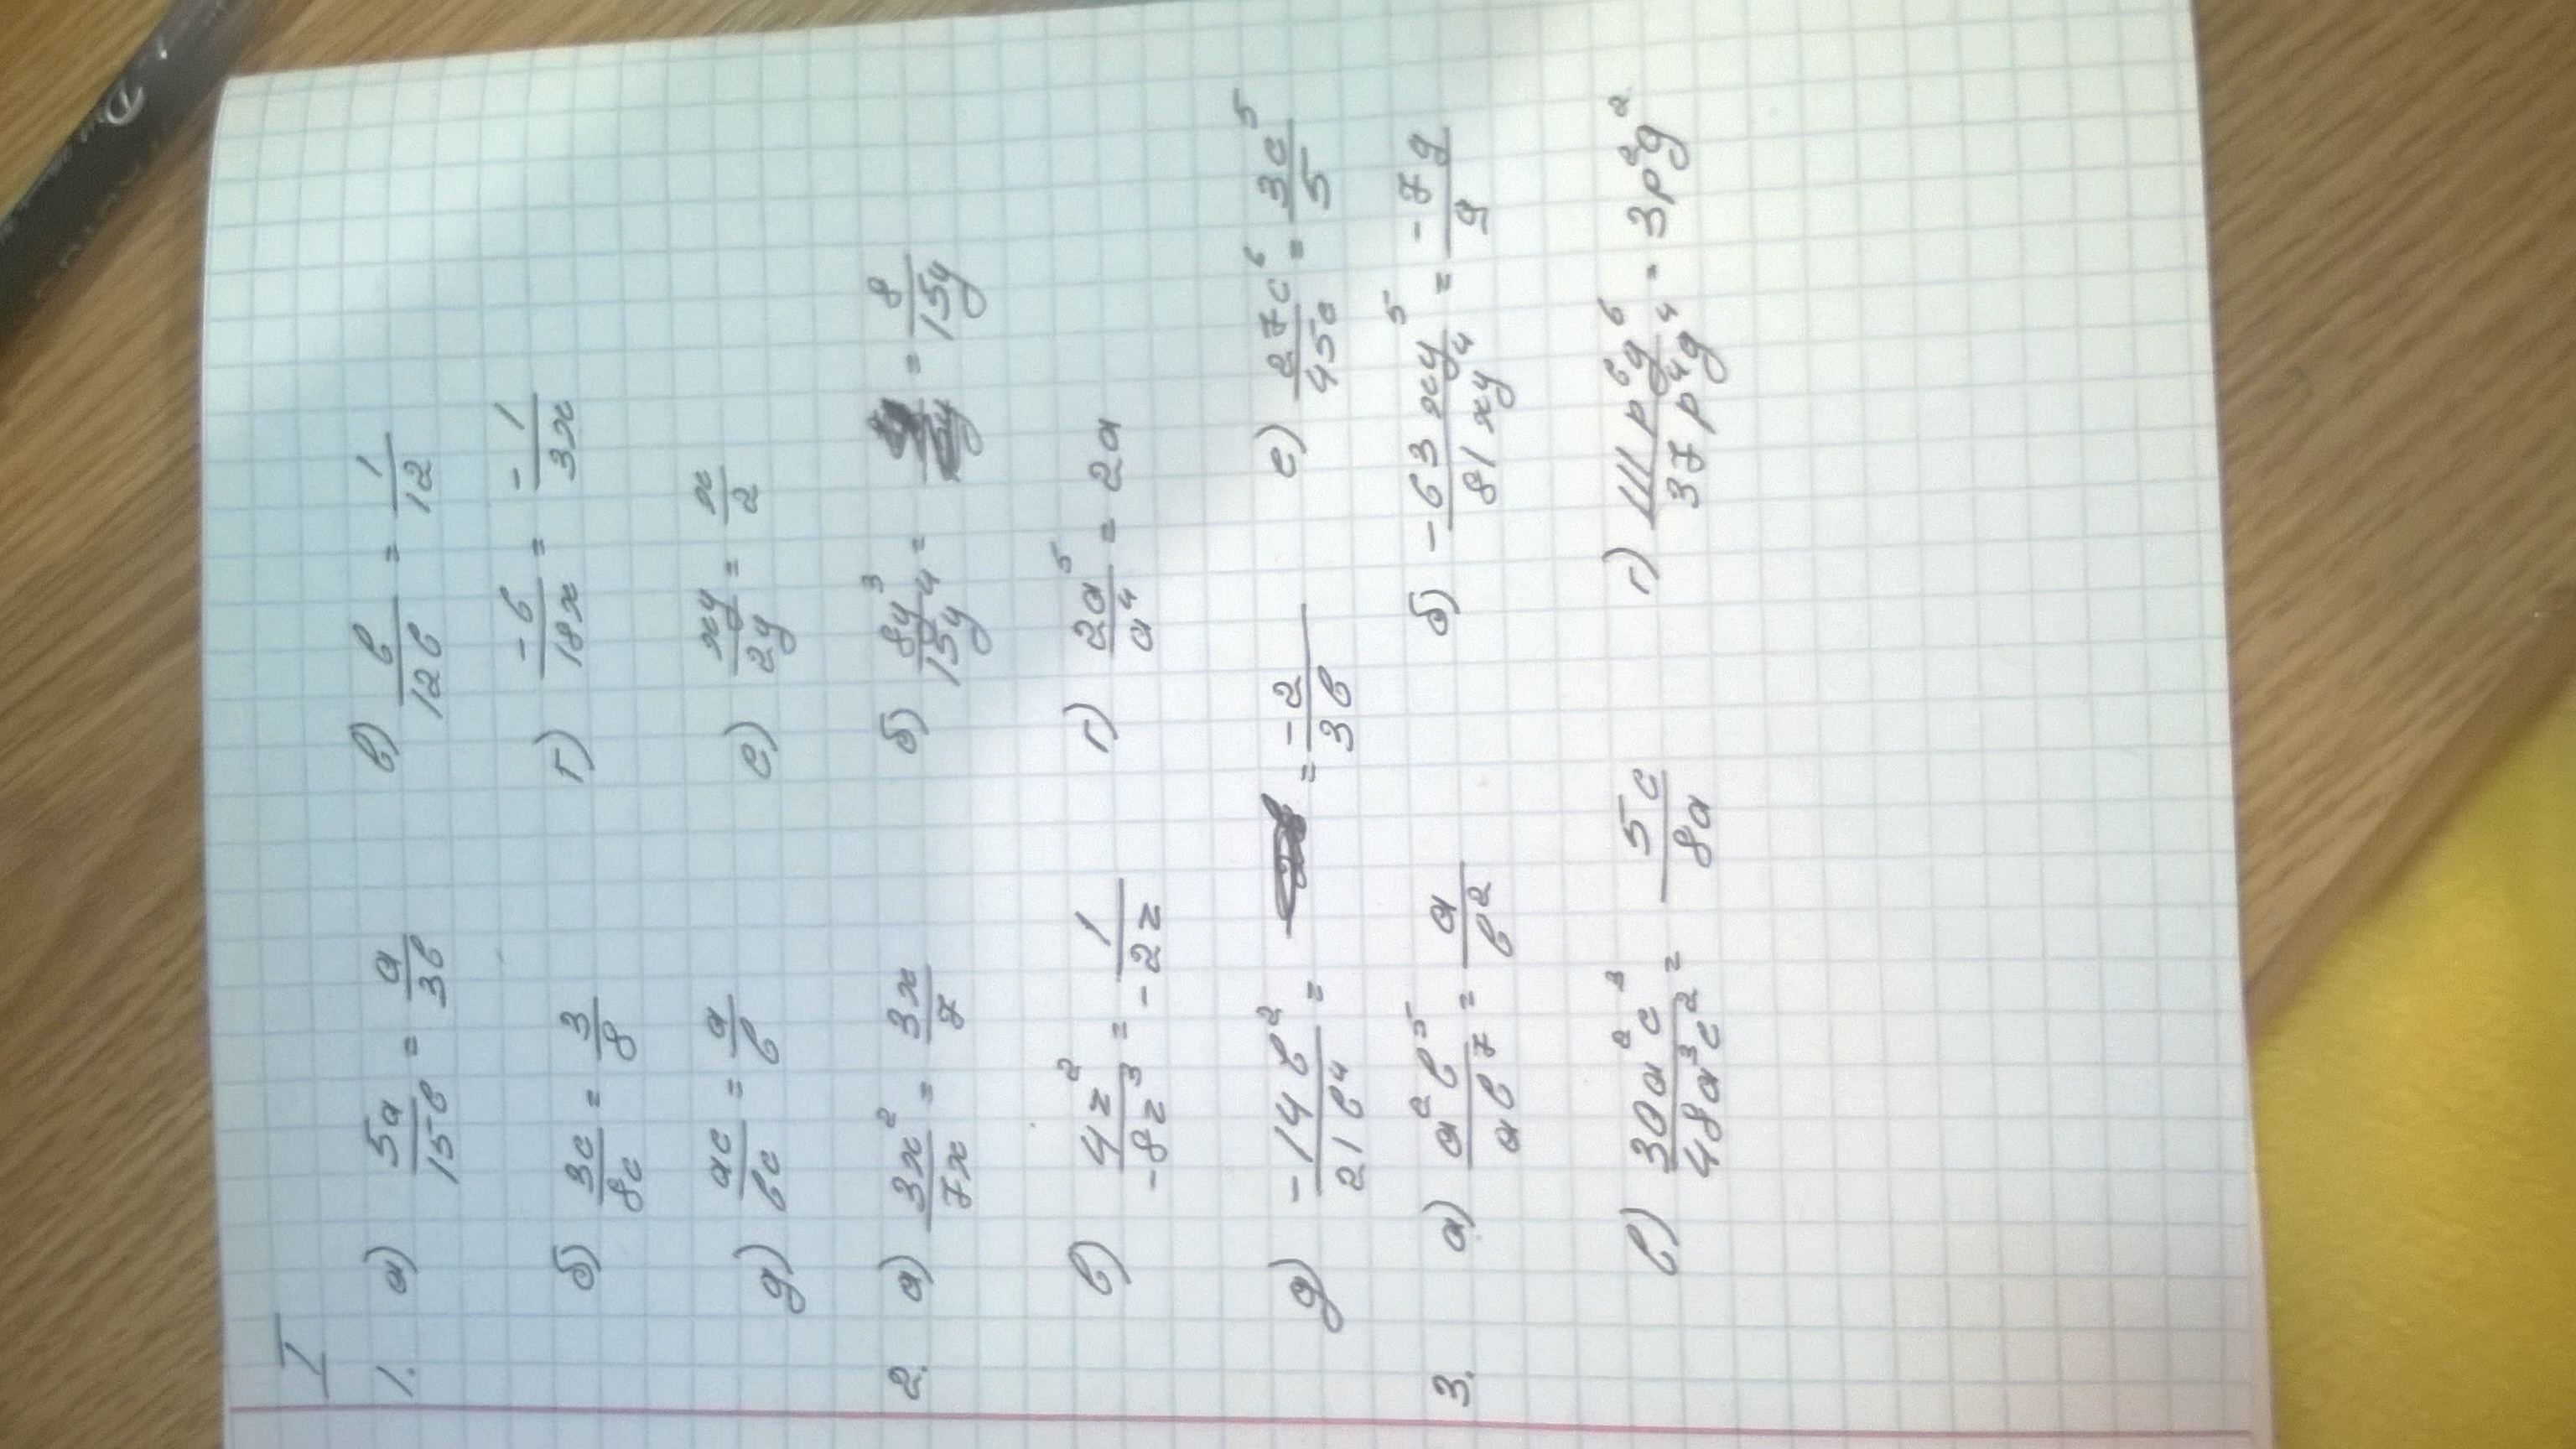 I
1. а) 5a/15b = a/3b в) b/12b = 1/12
б) 3c/8c = 3/8 г) -6/18x = -1/3x
д) ac/bc = a/b е) xy/2y = x/2
2. а) 3x²/7x = 3x/7 б) 8y³/15y⁴ = = 8/15y
в) 4z²/-8z³ = -1/2z г) 2a⁵/a⁴ = 2a
д) -14b²/21b⁴ = = -2/3b е) 27c⁶/45c = 3c⁵/5
3. а) a²b⁵/ab⁷ = a/b² б) -63xy⁵/81xy⁴ = -7y/9
в) 30a²c³/48a³c² = 5c/8a г) 111p⁶g⁶/37p⁴g⁴ = 3p²g²